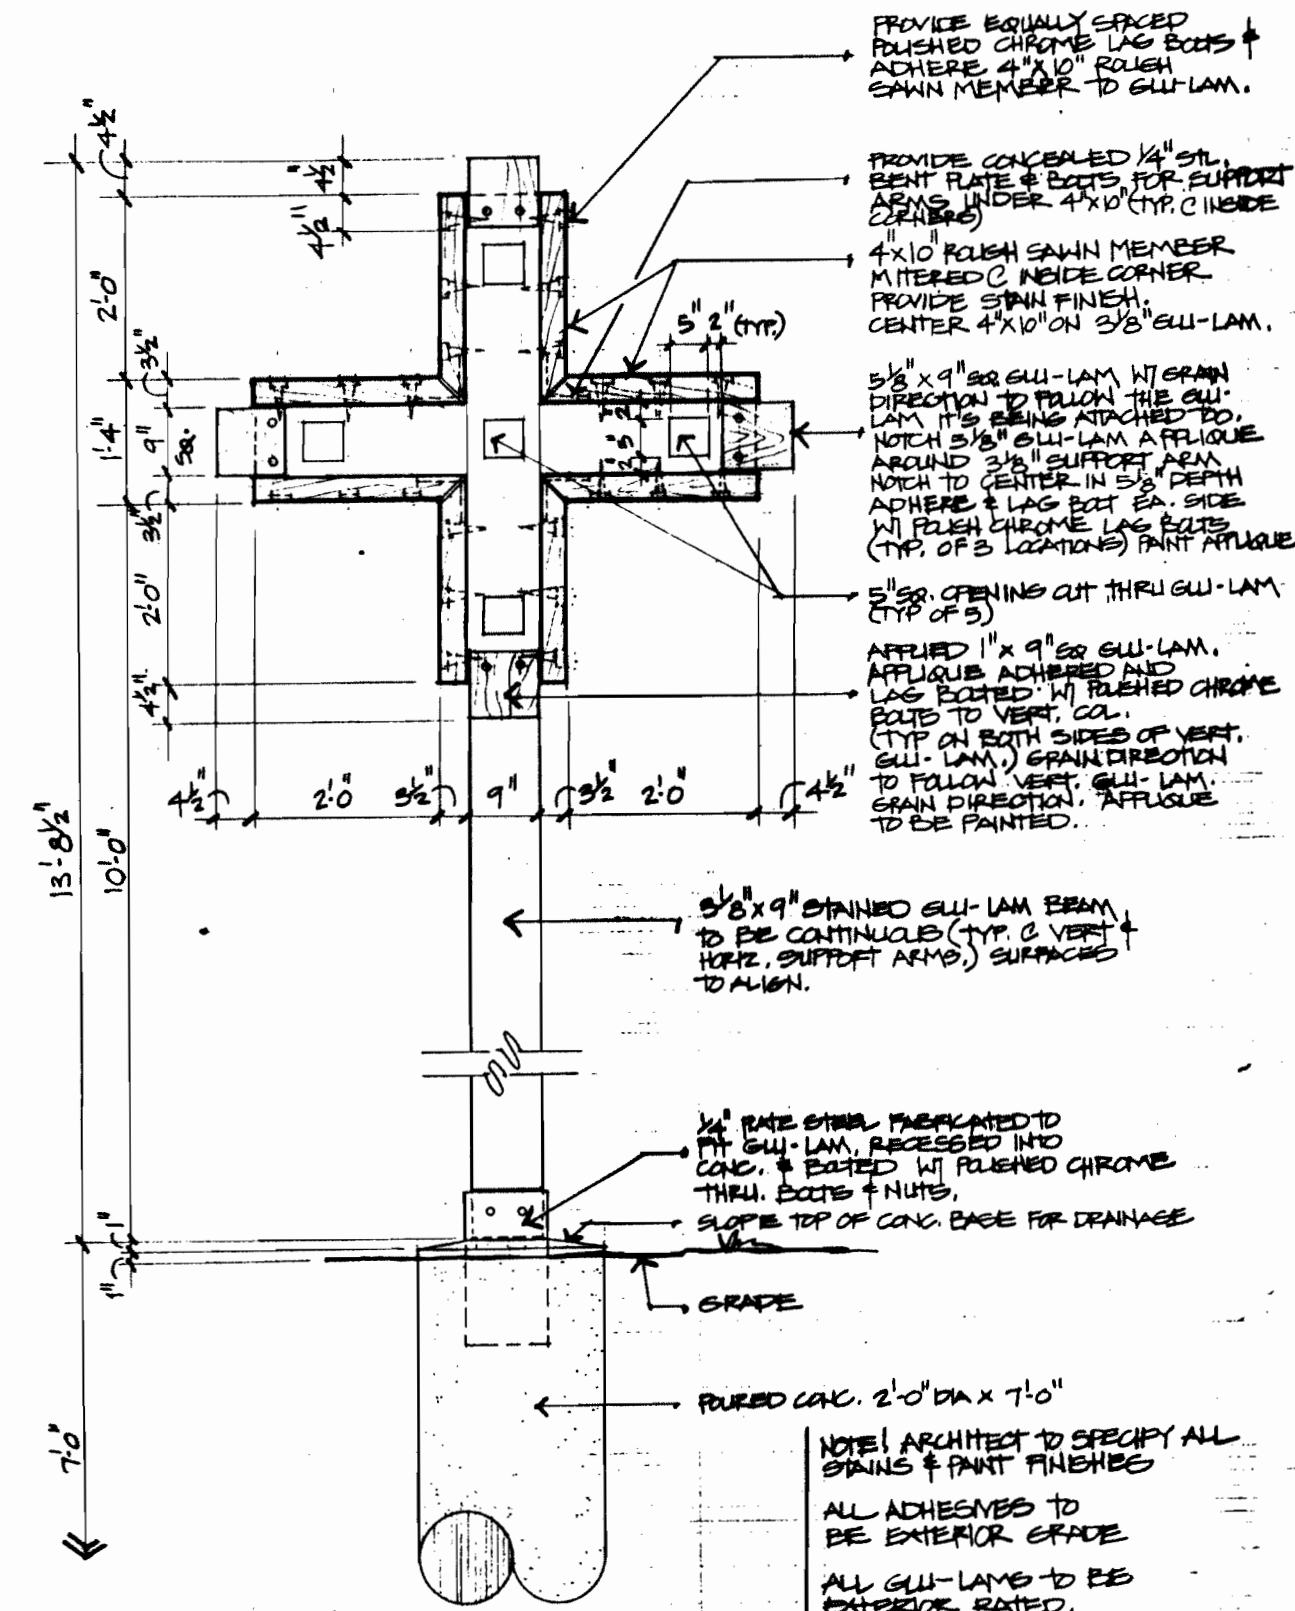 PROVIDE EQUALLY SPACED
POLISHED CHROME LAG BOLTS &
ADHERE 4"X10" ROUGH
SAWN MEMBER TO GLU-LAM.
PROVIDE CONCEALED 1/4" STL.
BENT PLATE & BOLTS FOR SUPPORT
ARMS UNDER 4"X10" (TYP. C INSIDE
CORNERS)
4"X10" ROUGH SAWN MEMBER
MITERED C INSIDE CORNER
PROVIDE STAIN FINISH.
CENTER 4"X10" ON 3 1/8" GLU-LAM.
5 1/8" X 9" SQ GLU-LAM W/ GRAIN
DIRECTION TO FOLLOW THE GLU-
LAM IT'S BEING ATTACHED TOO.
NOTCH 5 1/8" GLU-LAM APPLIQUE
AROUND 3 1/8" SUPPORT ARM
NOTCH TO CENTER IN 5 1/8" DEPTH
ADHERE & LAG BOLT EA. SIDE
W/ POLISH CHROME LAG BOLTS
(TYP. OF 3 LOCATIONS) PAINT APPLIQUE
5" SQ. OPENING CUT THRU GLU-LAM
(TYP OF 5)
APPLIED 1" X 9" SQ GLU-LAM.
APPLIQUE ADHERED AND
LAG BOLTED W/ POLISHED CHROME
BOLTS TO VERT. COL.
(TYP ON BOTH SIDES OF VERT.
GLU-LAM.) GRAIN DIRECTION
TO FOLLOW VERT. GLU-LAM.
GRAIN DIRECTION. APPLIQUE
TO BE PAINTED.
3 1/8" X 9" STAINED GLU-LAM BEAM
TO BE CONTINUOUS (TYP. C VERT &
HORIZ. SUPPORT ARMS.) SURFACES
TO ALIGN.
1/4" PLATE STEEL FABRICATED TO
FIT GLU-LAM, RECESSED INTO
CONC. & BOLTED W/ POLISHED CHROME
THRU. BOLTS & NUTS.
SLOPE TOP OF CONC. BASE FOR DRAINAGE
GRADE
POURED CONC. 2'-0" DIA X 7'-0"
NOTE! ARCHITECT TO SPECIFY ALL
STAINS & PAINT FINISHES
ALL ADHESIVES TO
BE EXTERIOR GRADE
ALL GLU-LAMS TO BE
EXTERIOR RATED.
4 1/2"
4 1/2"
4 1/2"
2'-0"
3 1/2"
1'-4"
9"
SQ.
3 1/2"
2'-0"
4 1/2"
5" 2" (TYP.)
2
5
2"
4 1/2" 2'-0" 3 1/2" 9" 3 1/2" 2'-0" 4 1/2"
13'-8 1/2"
10'-0"
1"
1"
7'-0"